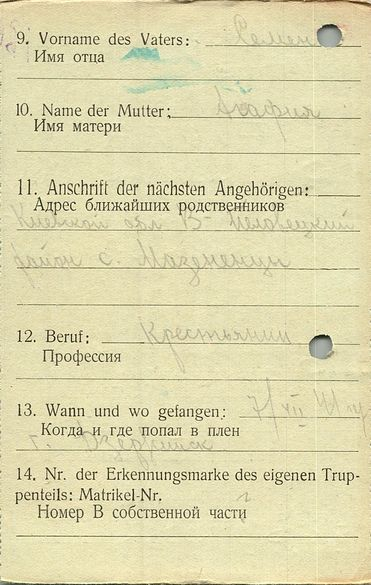 9. Vorname des Vaters: Семен
Имя отца
10. Name der Mutter: Агафия
Имя матери
11. Anschrift der nächsten Angehörigen:
Адрес ближайших родственников
Киевской обл В-
район с.
12. Beruf: Крестьянин
Профессия
13. Wann und wo gefangen: 7/VII
Когда и где попал в плен
г.
14. Nr. der Erkennungsmarke des eigenen Trup-
penteils: Matrikel-Nr.
Номер В собственной части